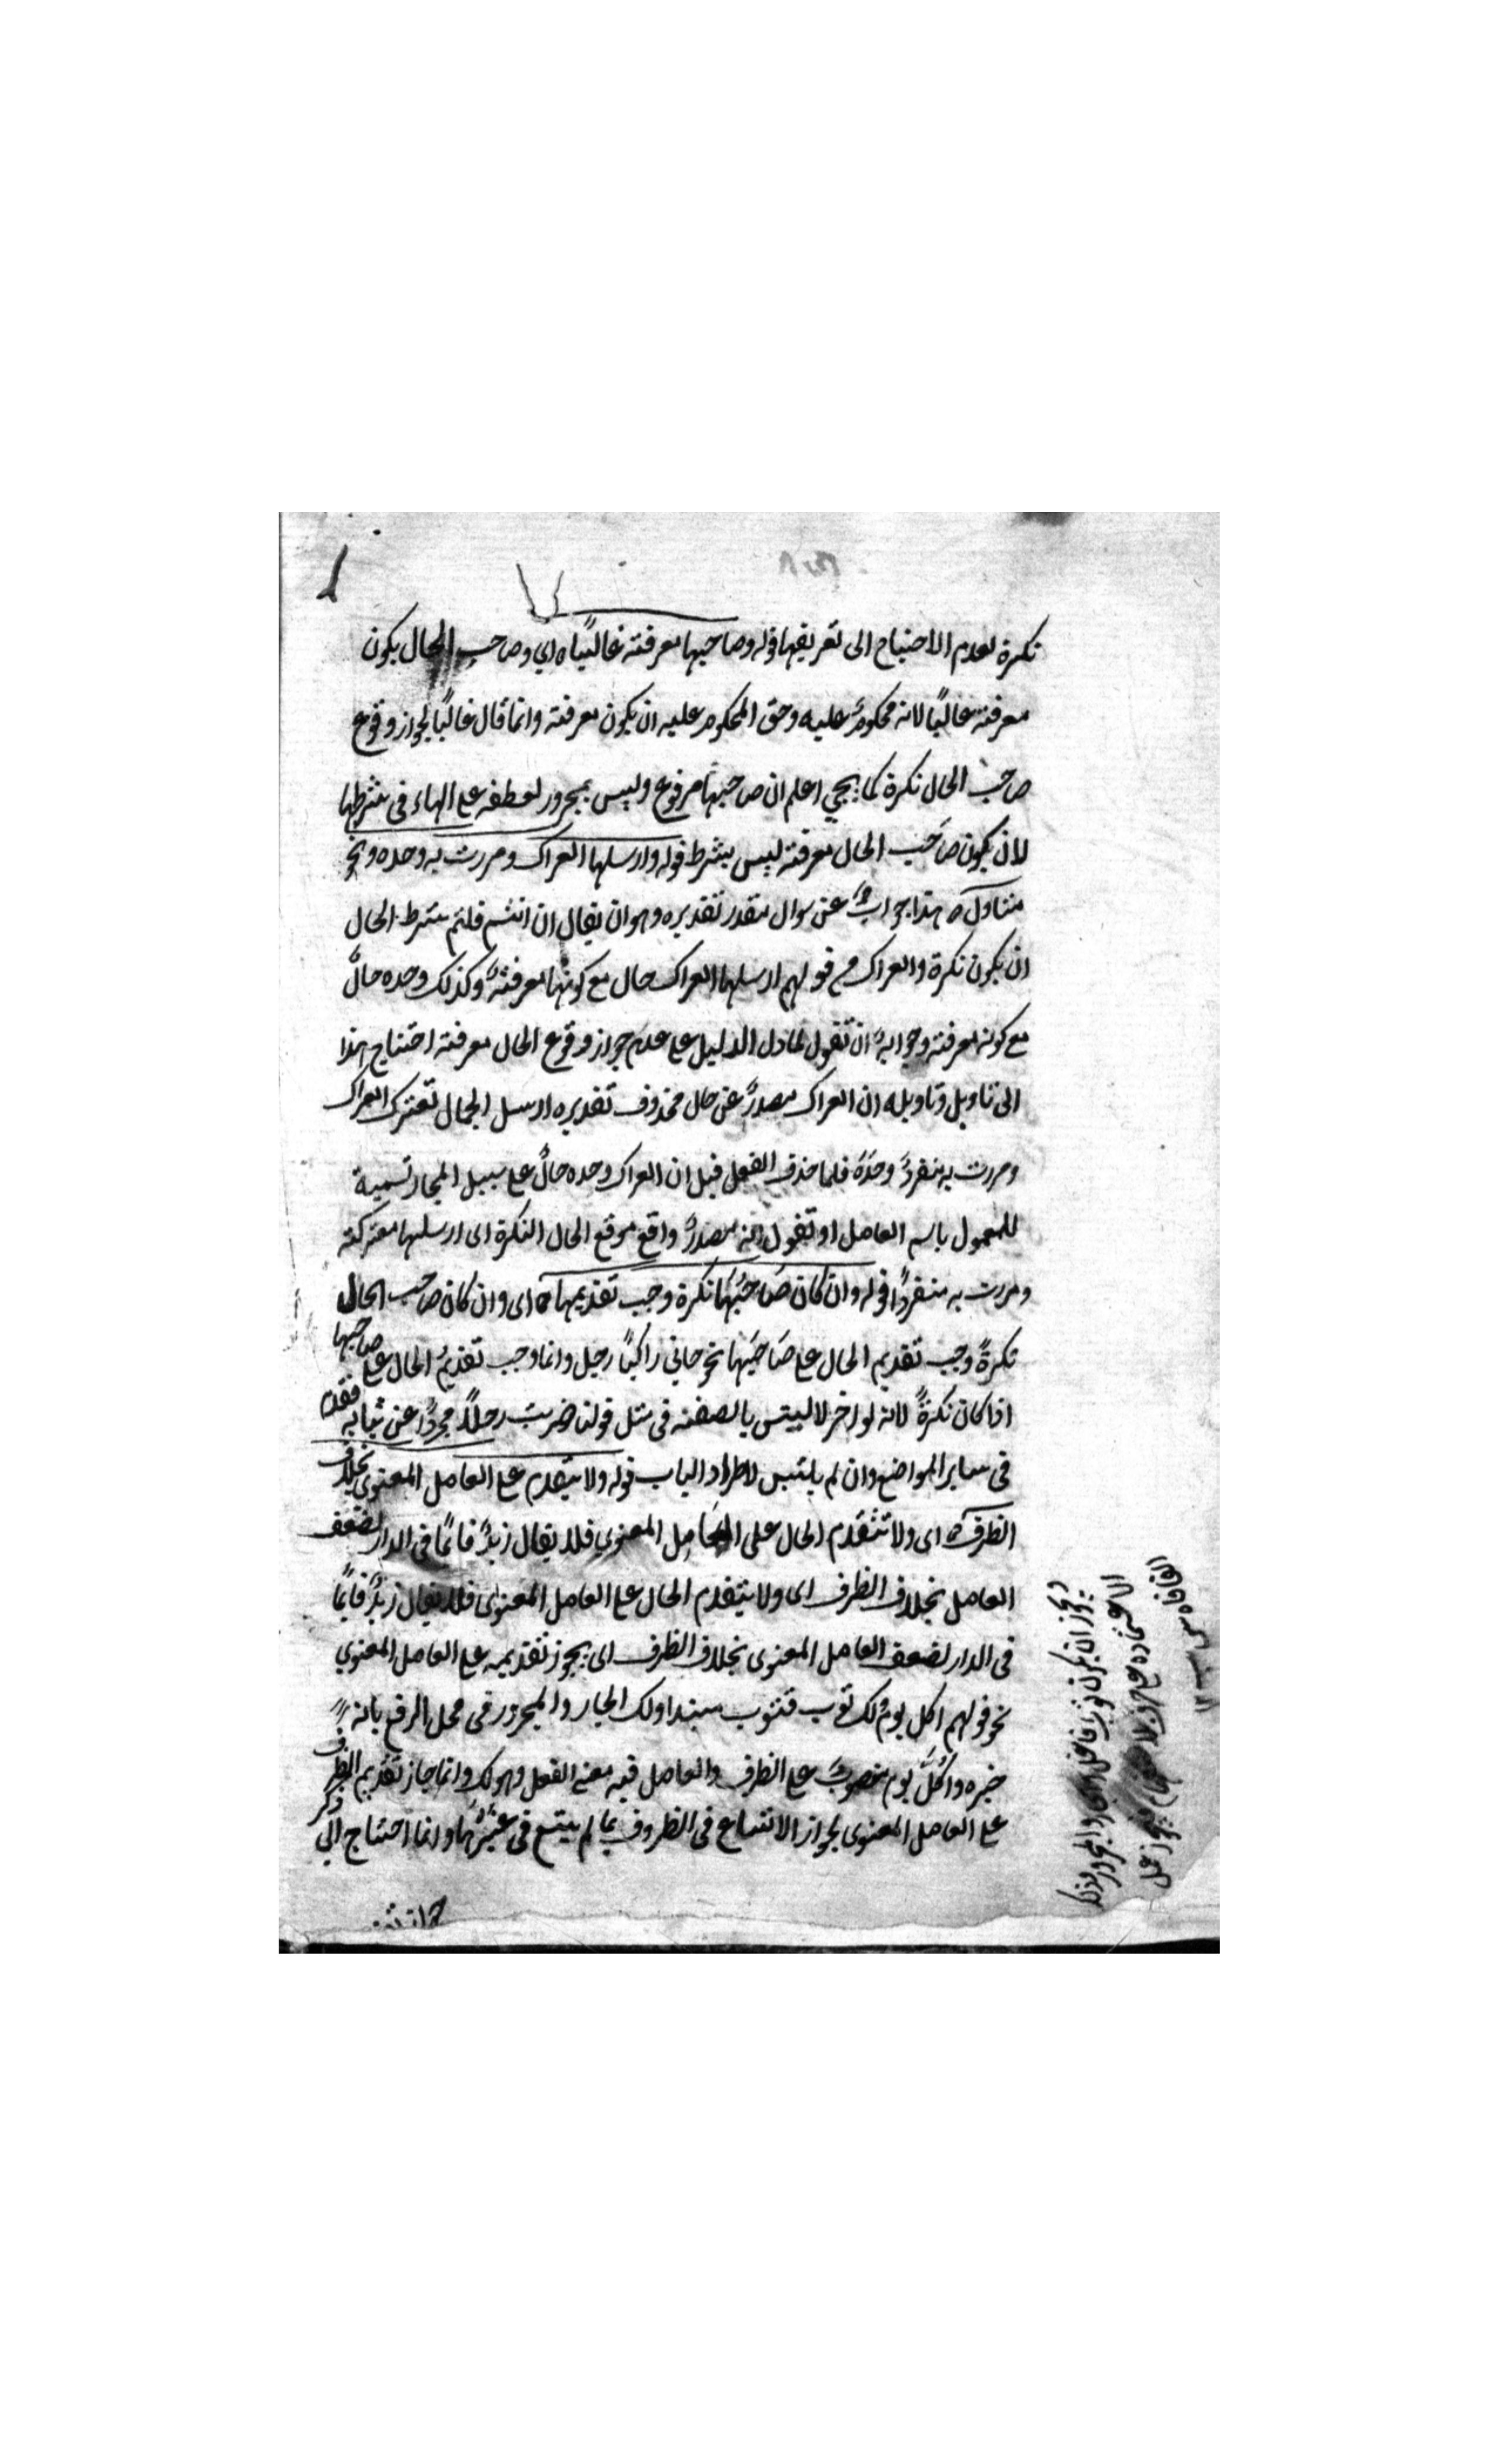 نكرة لعدم الاحتياج الى تعريفها قوله وصاحبها معرفة غالبًا ه اي وصاحب الحال يكون
معرفة غالبًا لانه محكومٌ عليه وحق المحكوم عليه ان يكون معرفة وانما قال غالبًا لجواز وقوع
صاحب الحال نكرة كما يجي اعلم ان صاحبها مرفوع وليس بمجرور لعطفه على الهاء في شرطها
لان يكون صاحب الحال معرفة ليس بشرط قوله وارسلها العراك ومررت به وحده ونحوه
متناول ه هذا جوابٌ عن سوال مقدر تقديره وهو ان يقال ان انتم قلتم شرط الحال
ان يكون نكرة والعراك في قولهم ارسلها العراك حال مع كونها معرفةً وكذلك وحده حالٌ
مع كونه معرفة وجوابه ان تقول لما دل الدليل على عدم جواز وقوع الحال معرفة احتاج هذا
الى تاويل وتاويله ان العراك مصدرٌ عن حال محذوف تقديره ارسل الجمال تعترك العراك
ومررت به ينفرد وحدَهُ فلما حذف الفعل قيل ان العراك وحده حالٌ على سبيل المجاز تسمية
للمعمول باسم العامل او تقول انه مصدرٌ واقع موقع الحال النكرة اى ارسلها معتركة
ومررت به منفردًا قوله وان كان صَاحبُهَا نكرة وجب تقديمها ه اى وان كان صاحب الحال
نكرةً وجب تقديم الحال على صَاحبِها نحو جاني راكبًا رجل وانما وجب تقديم الحال على صاحبها
اذا كان نكرةً لانه لو اخر لالتبس بالصفة في مثل قولنا ضربت رجلاً مجردًا عن ثيابه فقدم
في ساير المواضع وان لم يلتبس لاطراد الباب قوله ولا يتقدم على العامل المعنوي بخلاف
الظرف ه اى ولا تتقدم الحال على العَامِل المعنوي فلا يقال زيدٌ قائمًا في الدار لضعف
العامل بخلاف الظرف اى ولا يتقدم الحال على العامل المعنوى فلا يقال زيدٌ قايمًا
في الدار لضعف العامل المعنوى بخلاف الظرف اى يجوز تقديمه على العامل المعنوي
نحو قولهم اكل يوم لك ثوب فثوب مبتدا ولك الجار والمجرور في محل الرفع بانه
خبره واكُلَّ يوم منصوبٌ على الظرف والعامل فيه معنى الفعل وهو لك وانما جاز تقديم الظرف
على العامل المعنوى لجواز الاتساع في الظروف بما لم يتسع في غيرها وانما احتاج الى ذكر
ويجوز ان يكون ثوب فاعل الجار والمجرور